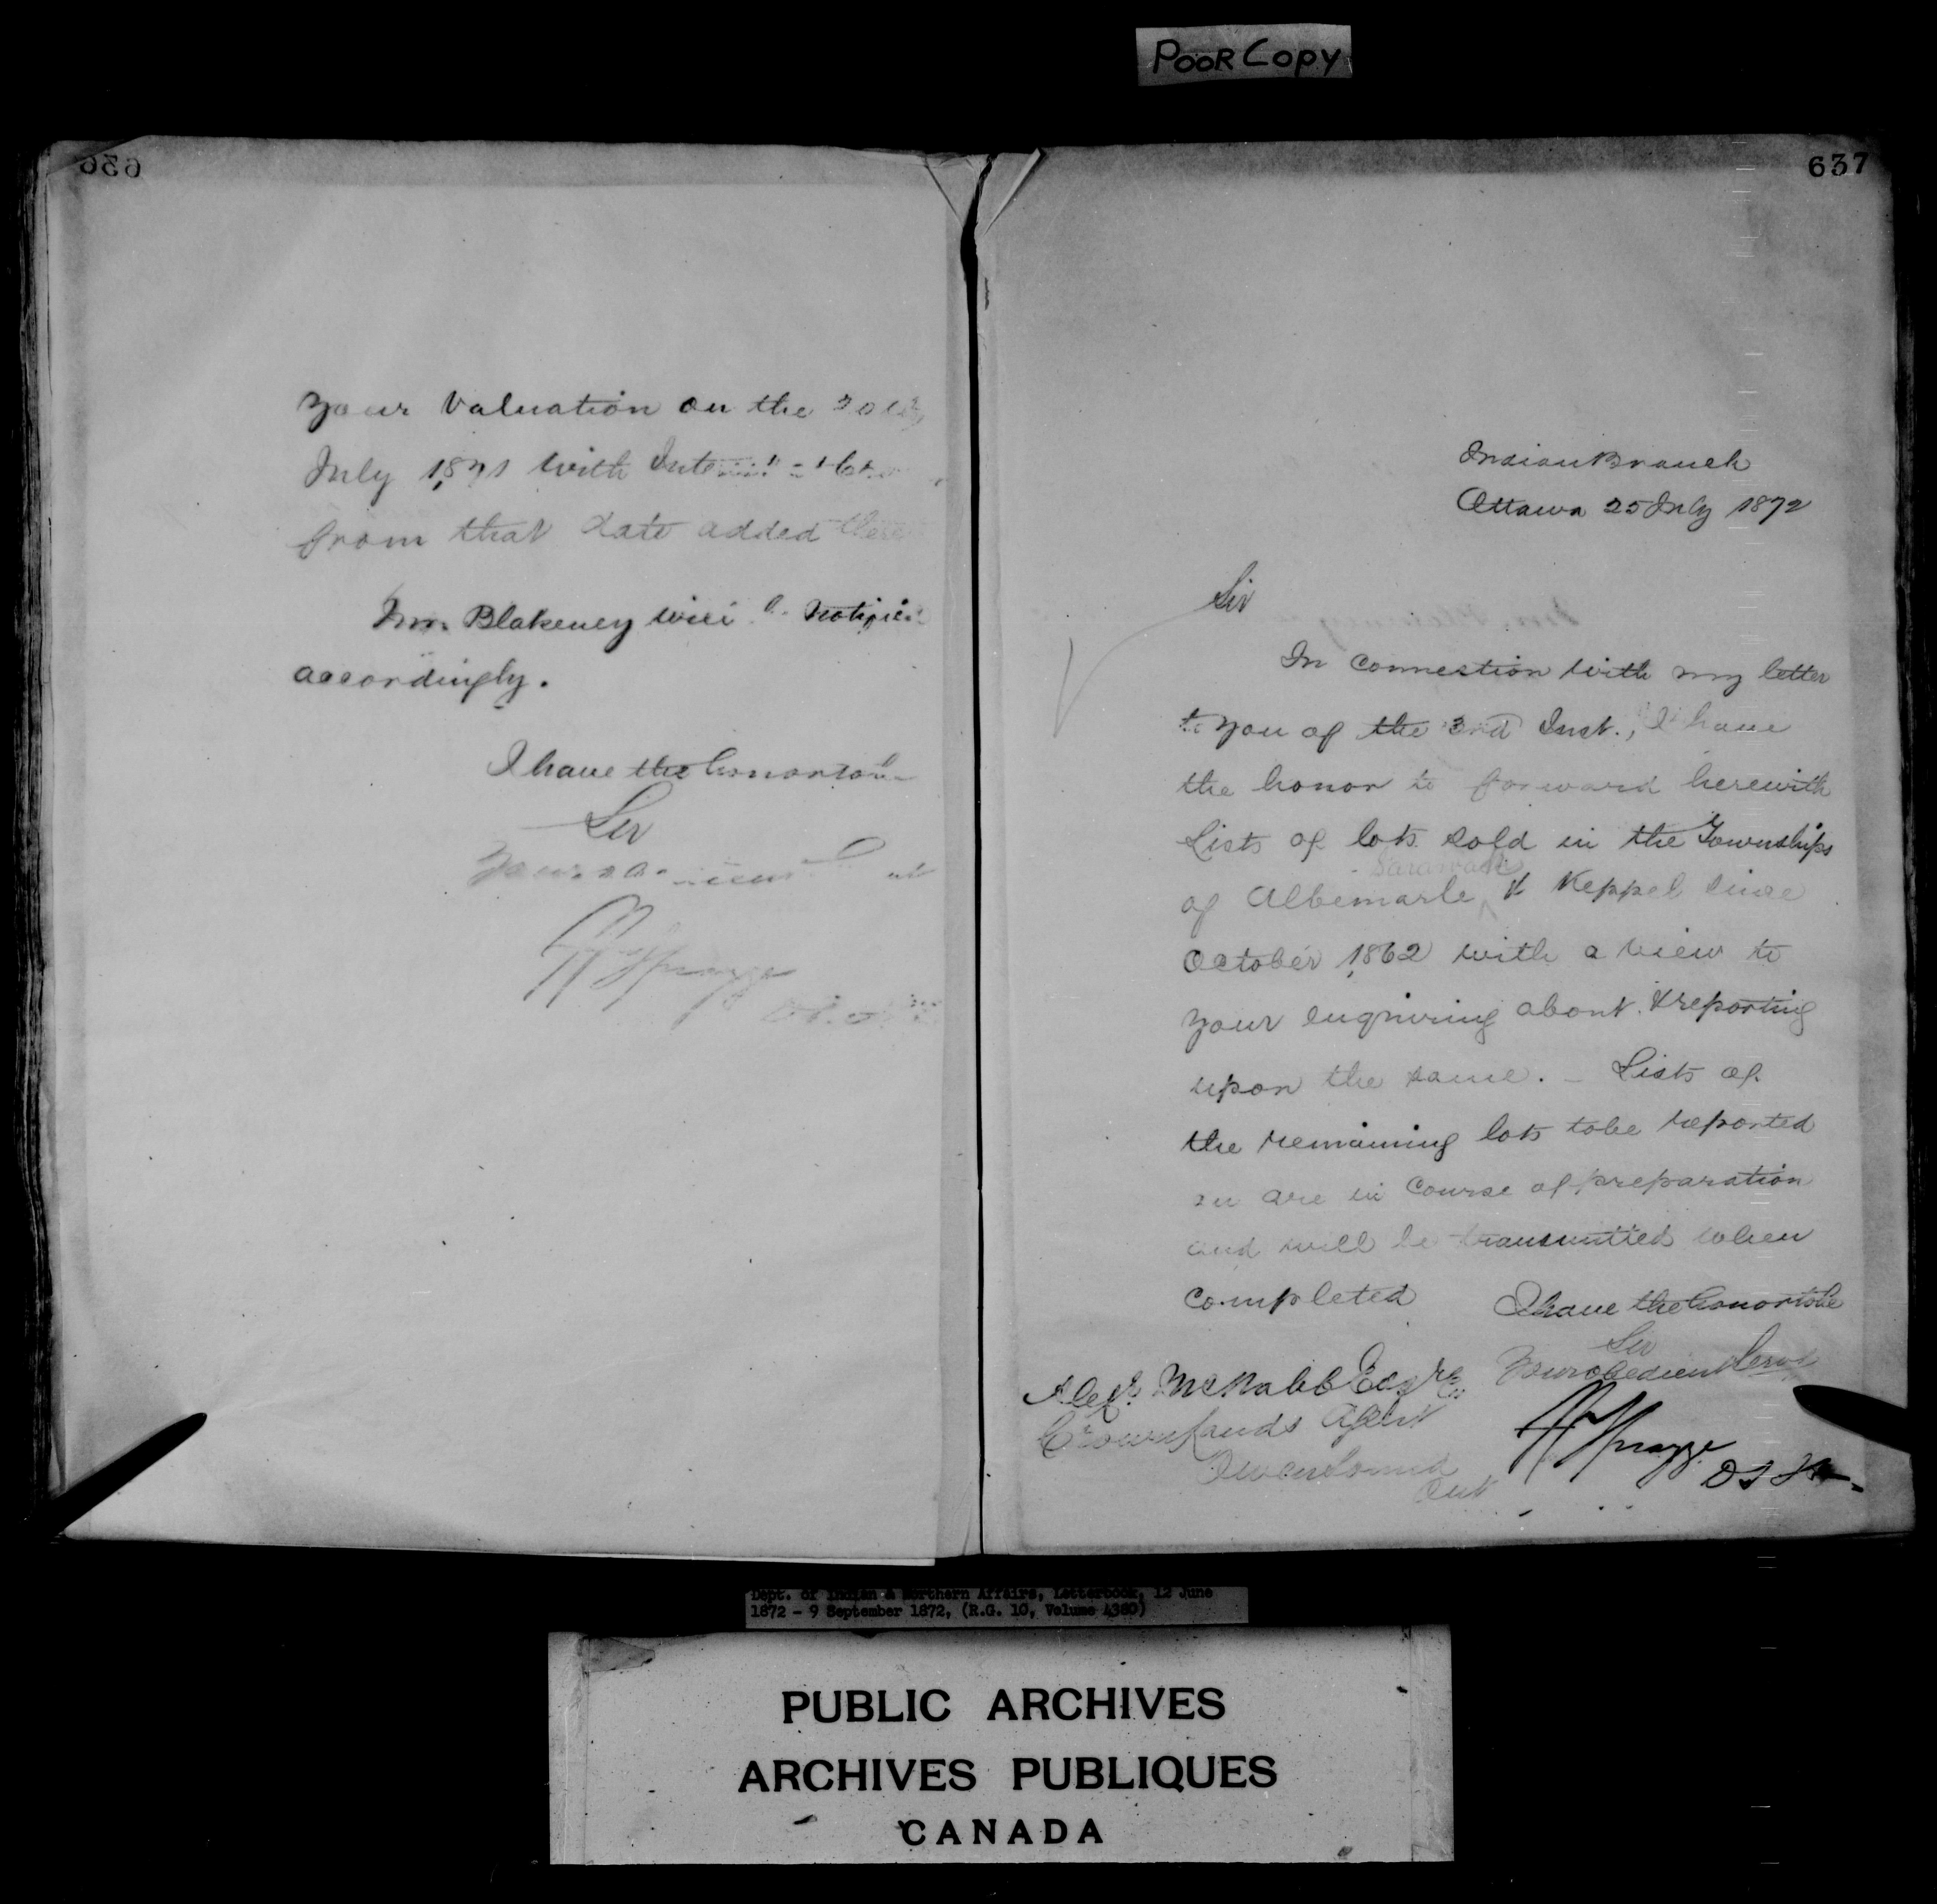 POOR Copy
636
your valuation on the 20th
July 1871 with Interest
from that date added
Mr. Blakeney will be notified
accordingly.
I have the honor to be
Sir
Your
637
Indian Branch
Ottawa 25 July 1872
Sir
In connection with my letter
to you of the 3rd Inst., I have
the honor to forward herewith
Lists of lots sold in the Townships
Sarawak
of Albemarle, & Keppel since
October 1862 with a view to
your enquiring about & reporting
upon the same. - Lists of
the remaining lots to be reported
on are in course of preparation
and will be transmitted when
completed
I have the honor to be
Sir
Your obedient Servt
Alexr McNabb Esqre
Crown Lands Agent
Owen Sound
Ont
Spragge
D S I A
Dept. of Indian & Northern Affairs, Letterbook, 12 June
1872 - 9 September 1872, (R.G. 10, Volume 4380)
PUBLIC ARCHIVES
ARCHIVES PUBLIQUES
CANADA